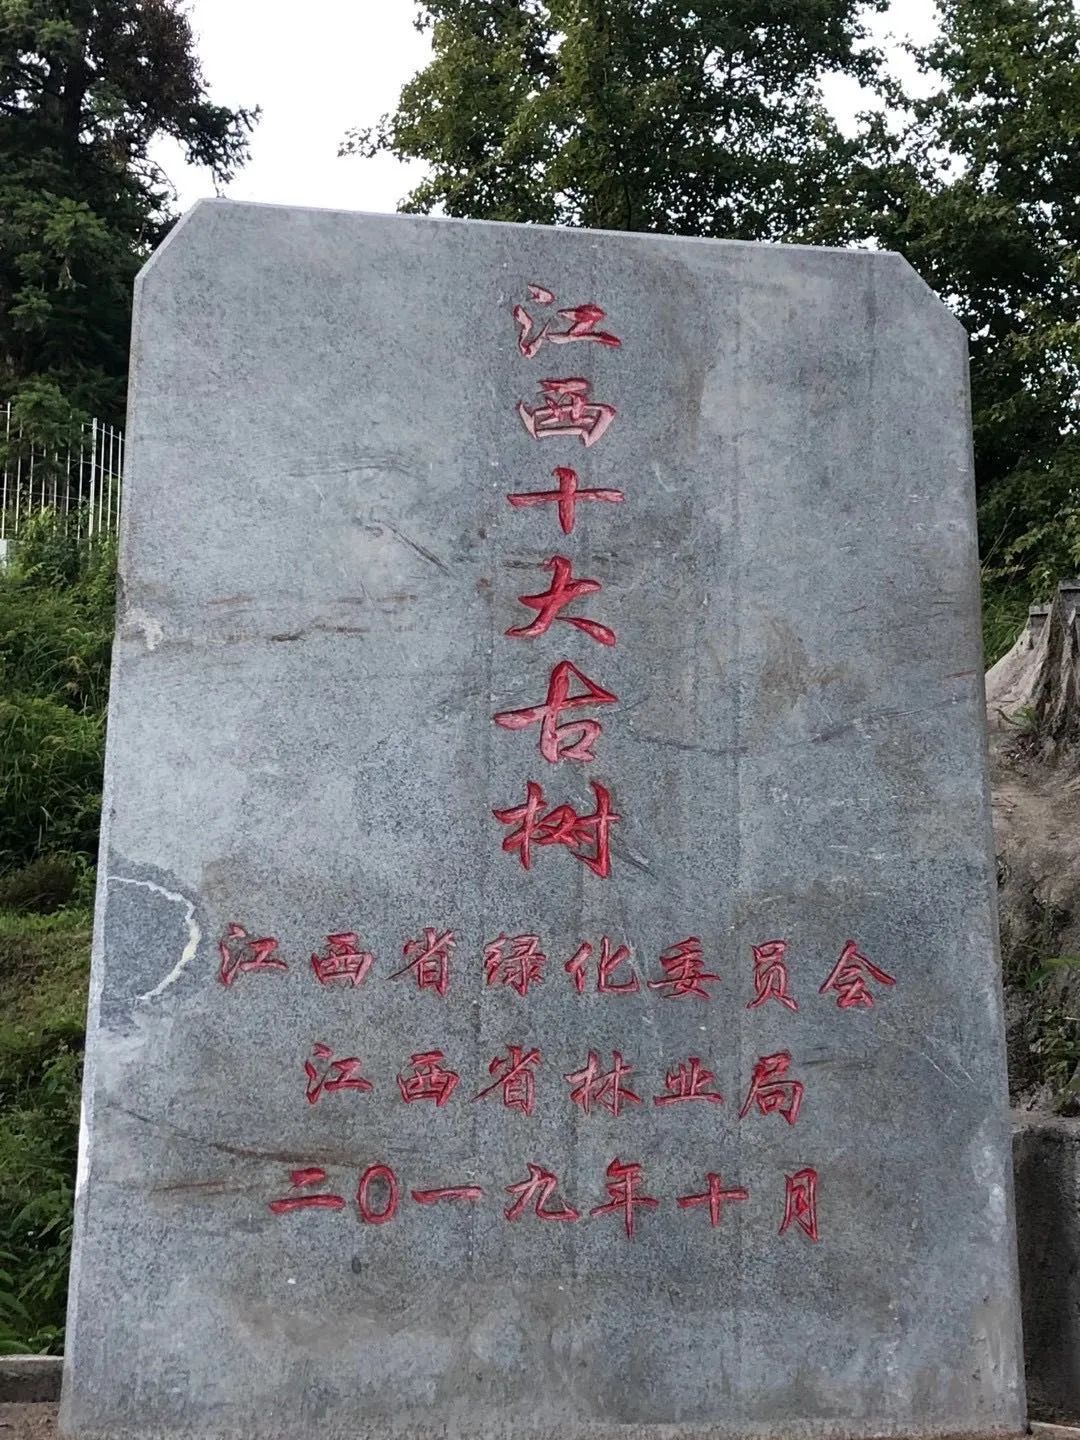 江西十大古树
江西省绿化委员会
江西省林业局
二0一九年十月